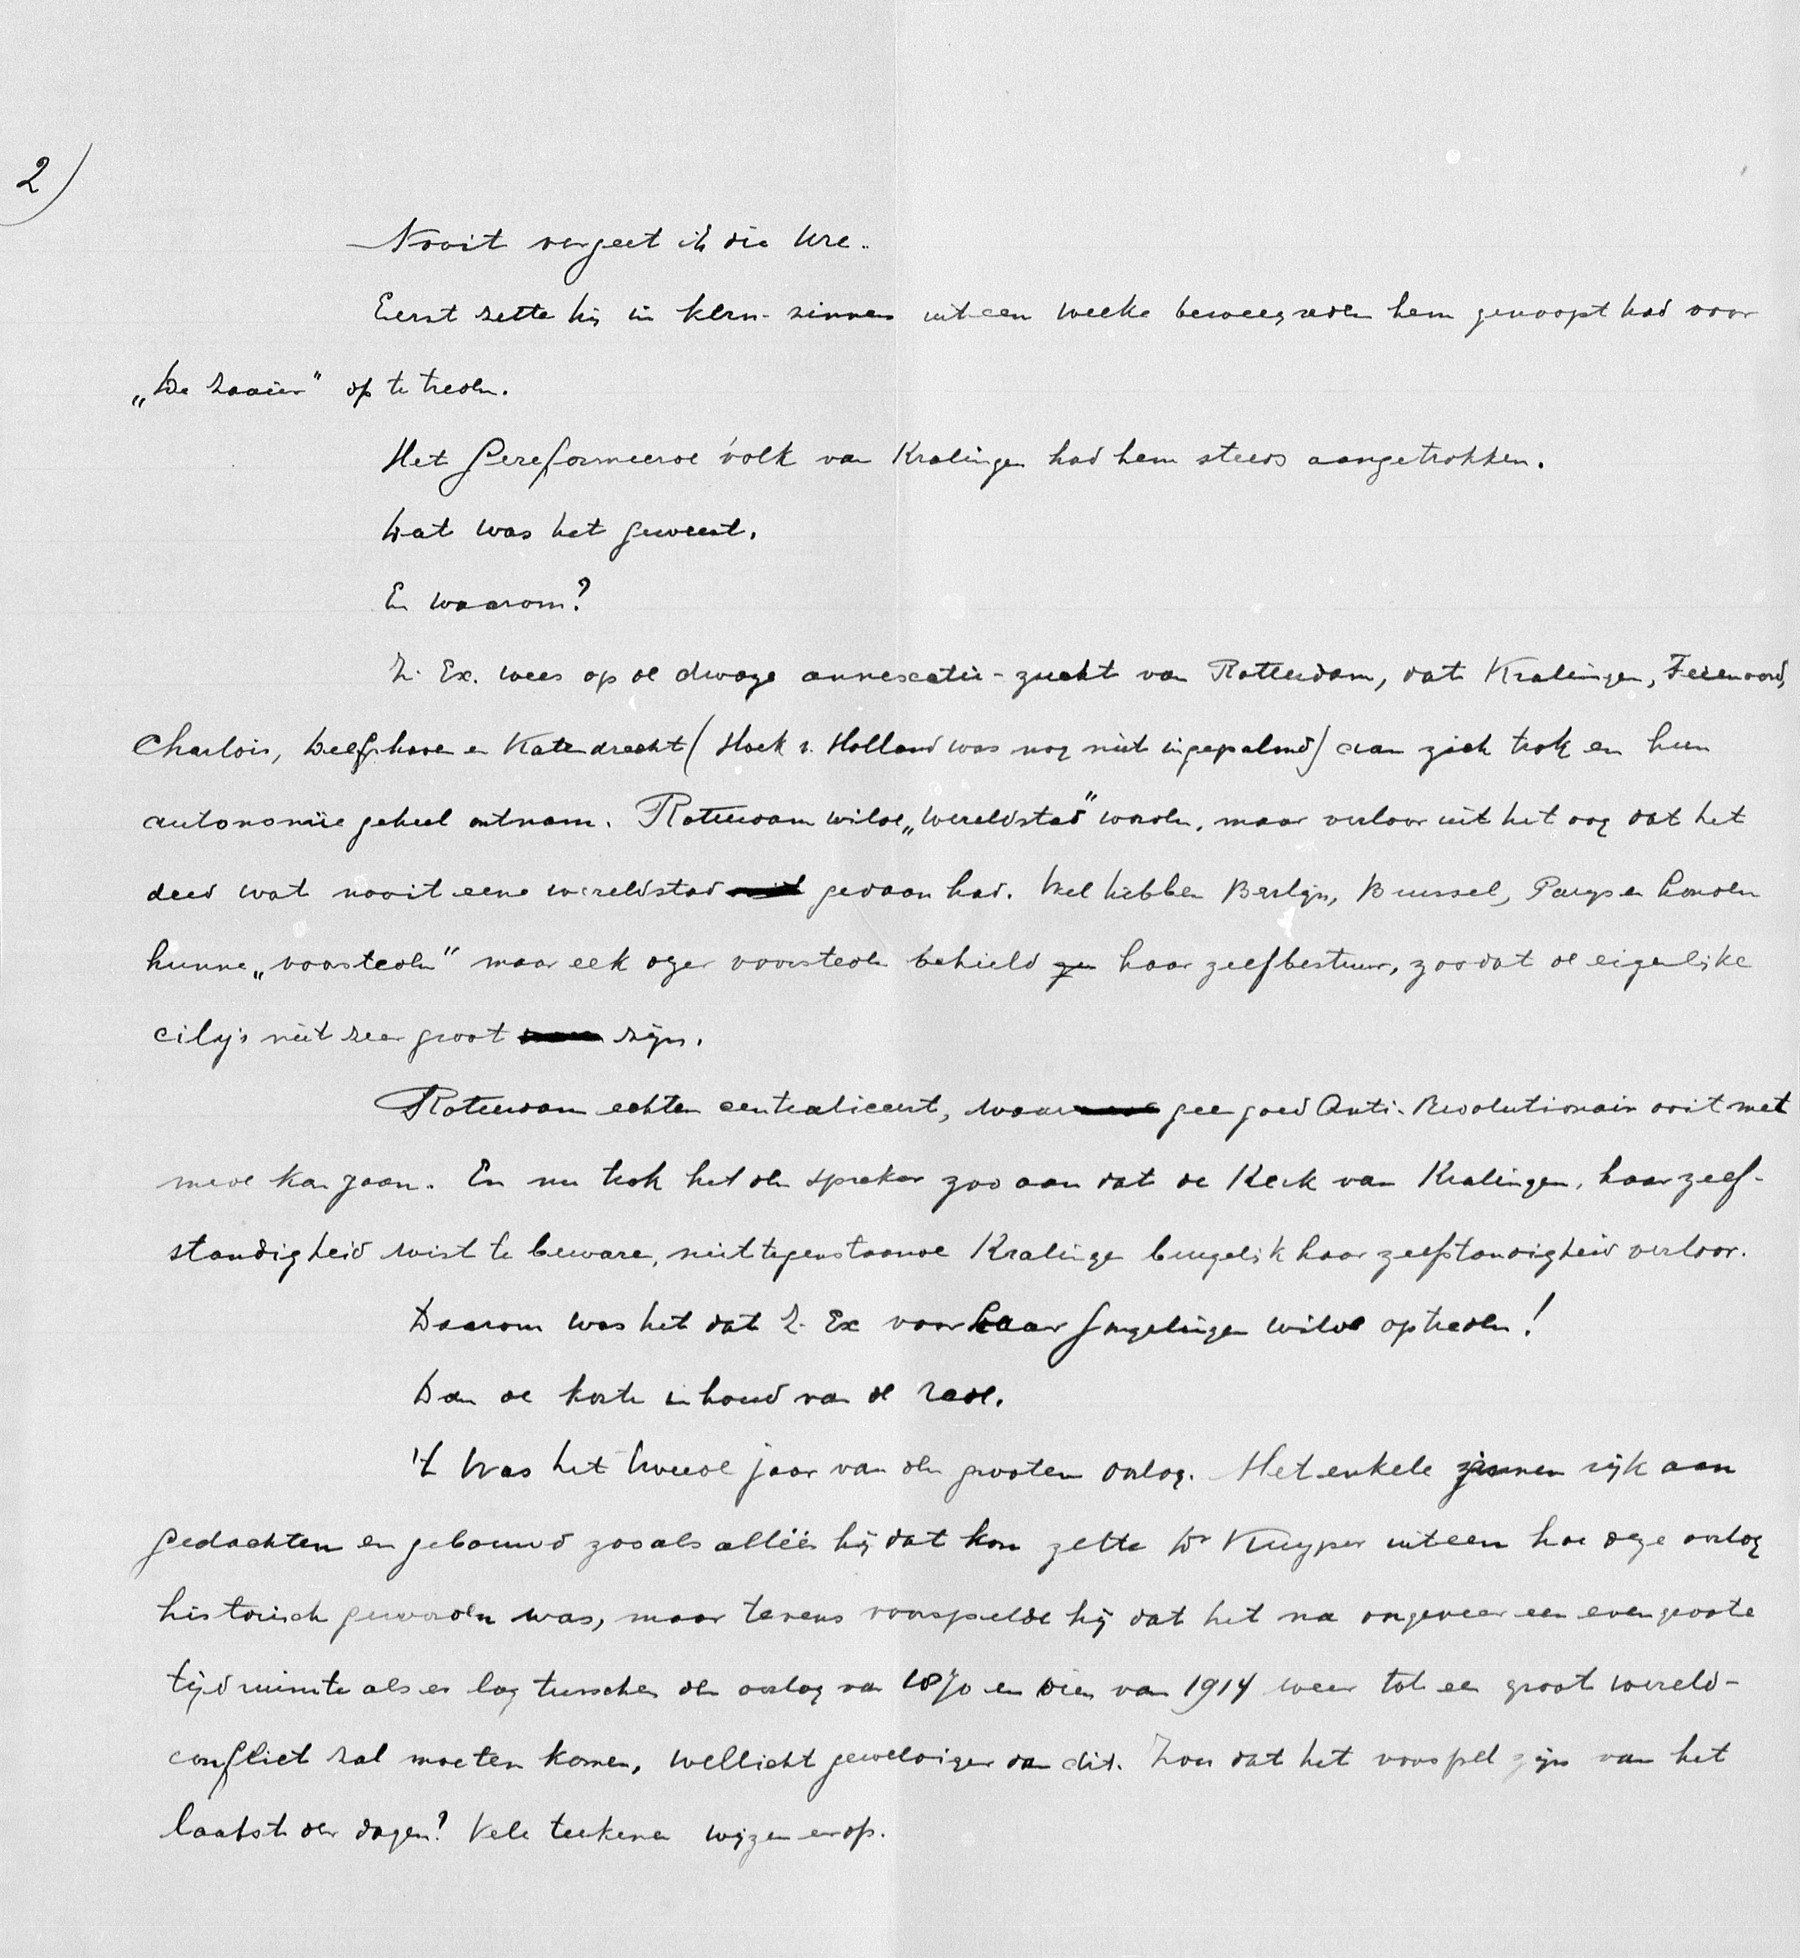 2)
Nooit vergeet ik die ure.
Eerst zette hij in kern-zinnen uiteen welke beweegreden hem genoopt had voor
„De Zaaier" op te treden.
Het Gereformeerde volk van Kralingen had hem steeds aangetrokken.
Wat was het geweest.
En waarom?
Z. Ex. wees op de dwaze annexatie-zucht van Rotterdam, dat Kralingen, Feienoord,
Charlois, Delfshaven en Katendrecht (Hoek v. Holland was nog niet ingepalmd) aan zich trok en hun
autonomie geheel ontnam. Rotterdam wilde „wereldstad" worden, maar verloor uit het oog dat het
deed wat nooit eene wereldstad gedaan had. Wel hebben Berlijn, Brussel, Parijs en Londen
hunne „voorsteden" maar elk dezer voorsteden behield haar zelfbestuur, zoodat de eigenlijke
city's niet zeer groot zijn.
Rotterdam echter centraliseert, waar geen goed Anti-Revolutionair ooit met
mede kan gaan. En nu trok het den spreker zoo aan dat de Kerk van Kralingen, haar zelf-
standigheid wist te bewaren, niettegenstaande Kralingen burgelijk haar zelfstandigheid verloor.
Daarom was het dat Z. Ex voor haar Jongelingen wilde optreden!
Dan de korte inhoud van de rede.
't Was het tweede jaar van den grooten oorlog. Met enkele zinnen rijk aan
gedachten en gebouwd zooals alléén hij dat kon zette Dr Kuyper uiteen hoe deze oorlog
historisch geworden was, maar tevens voorspelde hij dat het na ongeveer een even groote
tijdruimte als er lag tusschen den oorlog van 1870 en dien van 1914 weer tot een groot wereld-
conflict zal moeten komen, wellicht geweldiger dan dit. Zou dat het voorspel zijn van het
laatste der dagen? Vele teekenen wijzen erop.